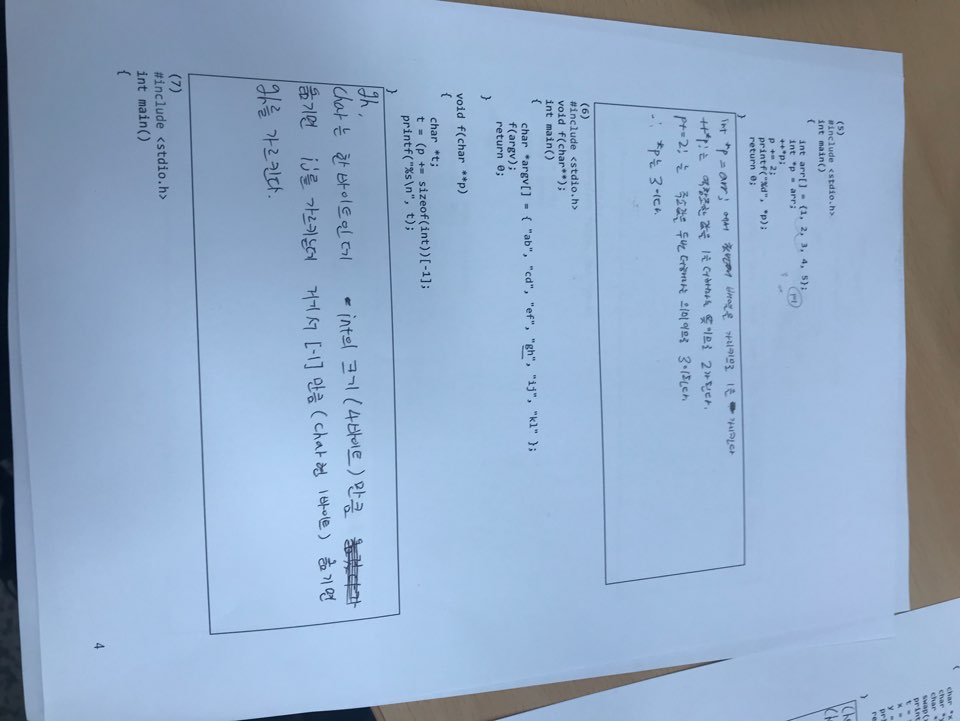 (5)
#include <stdio.h>
int main()
{
int arr[] = {1, 2, 3, 4, 5};
int *p = arr;
++*p;
p += 2;
printf("%d", *p);
return 0;
}
int *p = arr; 에서 첫번째 배열은 가리키므로 1을 가리킨다
++*p;는 역참조한 값을 1을 더해라는 뜻이므로 2가된다.
p+=2; 는 주소값을 두번 더해라는 의미이므로 3이된다.
∴ *p는 3이다.
(6)
#include <stdio.h>
void f(char**);
int main()
{
char *argv[] = { "ab", "cd", "ef", "gh", "ij", "kl" };
f(argv);
return 0;
}
void f(char **p)
{
char *t;
t = (p += sizeof(int))[-1];
printf("%s\n", t);
}
gh,
char는 한 바이트인데 int의 크기(4바이트)만큼
옮기면 ij를 가르키는데 거기서 [-1] 만큼(char형 1바이트) 옮기면
gh를 가르킨다.
(7)
#include <stdio.h>
int main()
{
4
{
char *x
char *y
char *
swap(
print
t =
x =
y =
pr
re
}